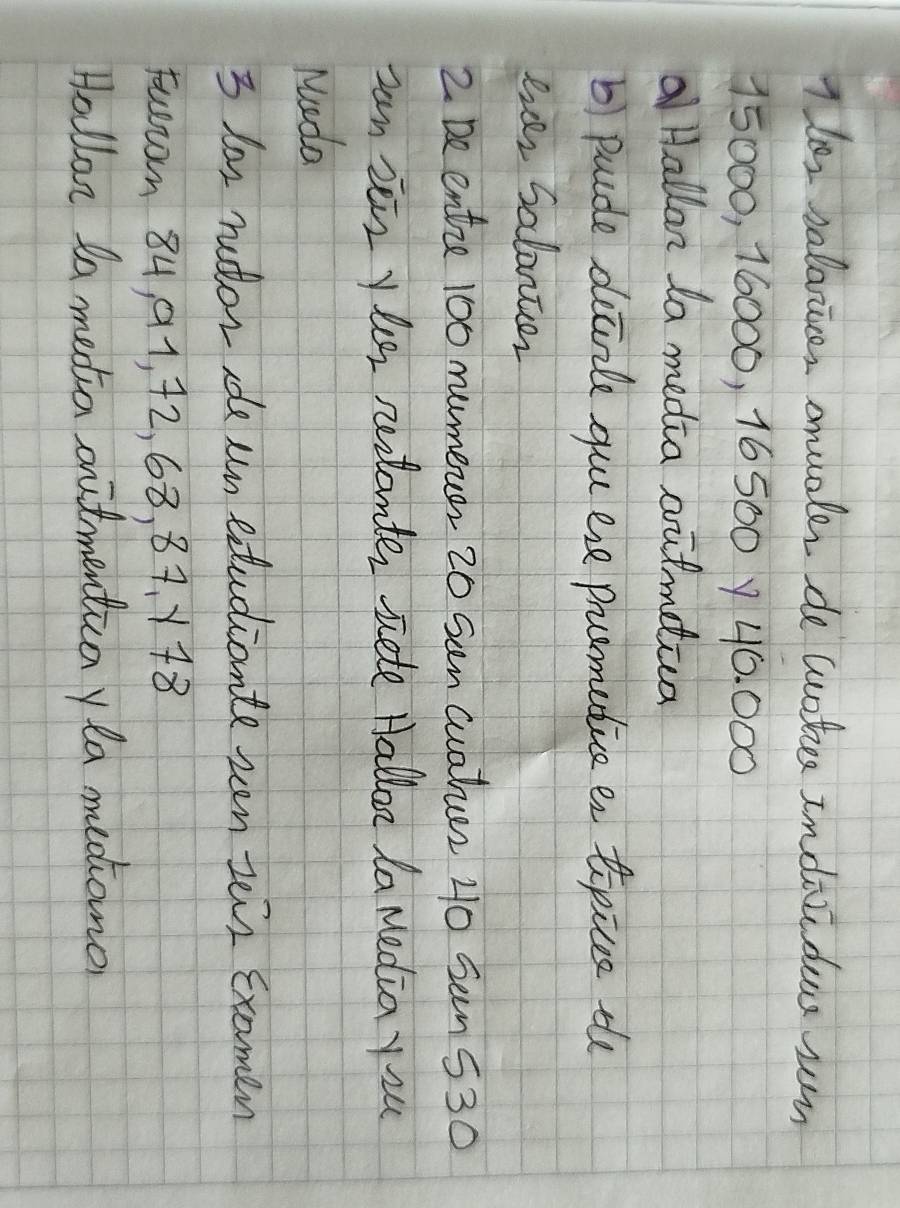 1 los salarios anuales de cuatro Individuo son
15000, 16000, 16500 y 40.000
a) Hallar la media aritmetica
b) Puede decirle que ese promedio es típico de
esos Salarios
2. De entre 100 numeros 20 son cuatros 40 son 5 30
son seis y los restantes siete Hallar la Media y su
Moda
3 las notas de un estudiante son seis Examen
Fueron 84, 91, 72, 68, 87, y 78
Hallar la media aritmentica y la mediana